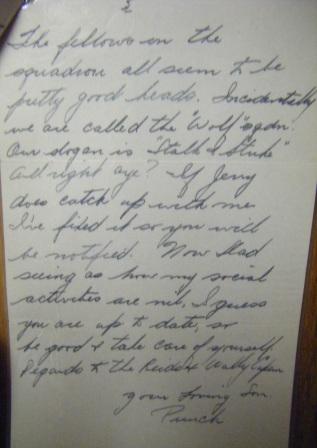 2
The fellows on the
squadron all seem to be
pretty good heads. Incidentally
we are called the "Wolf" sqdn.
Our slogan is "Stalk & Strike"
All right aye? If Jerry
does catch up with me
I've fixed it so you will
be notified. Now Dad
seeing as how my social
activities are nil, I guess
you are up to date, so
be good & take care of yourself.
Regards to the Reids & Wally
your loving Son
Punch